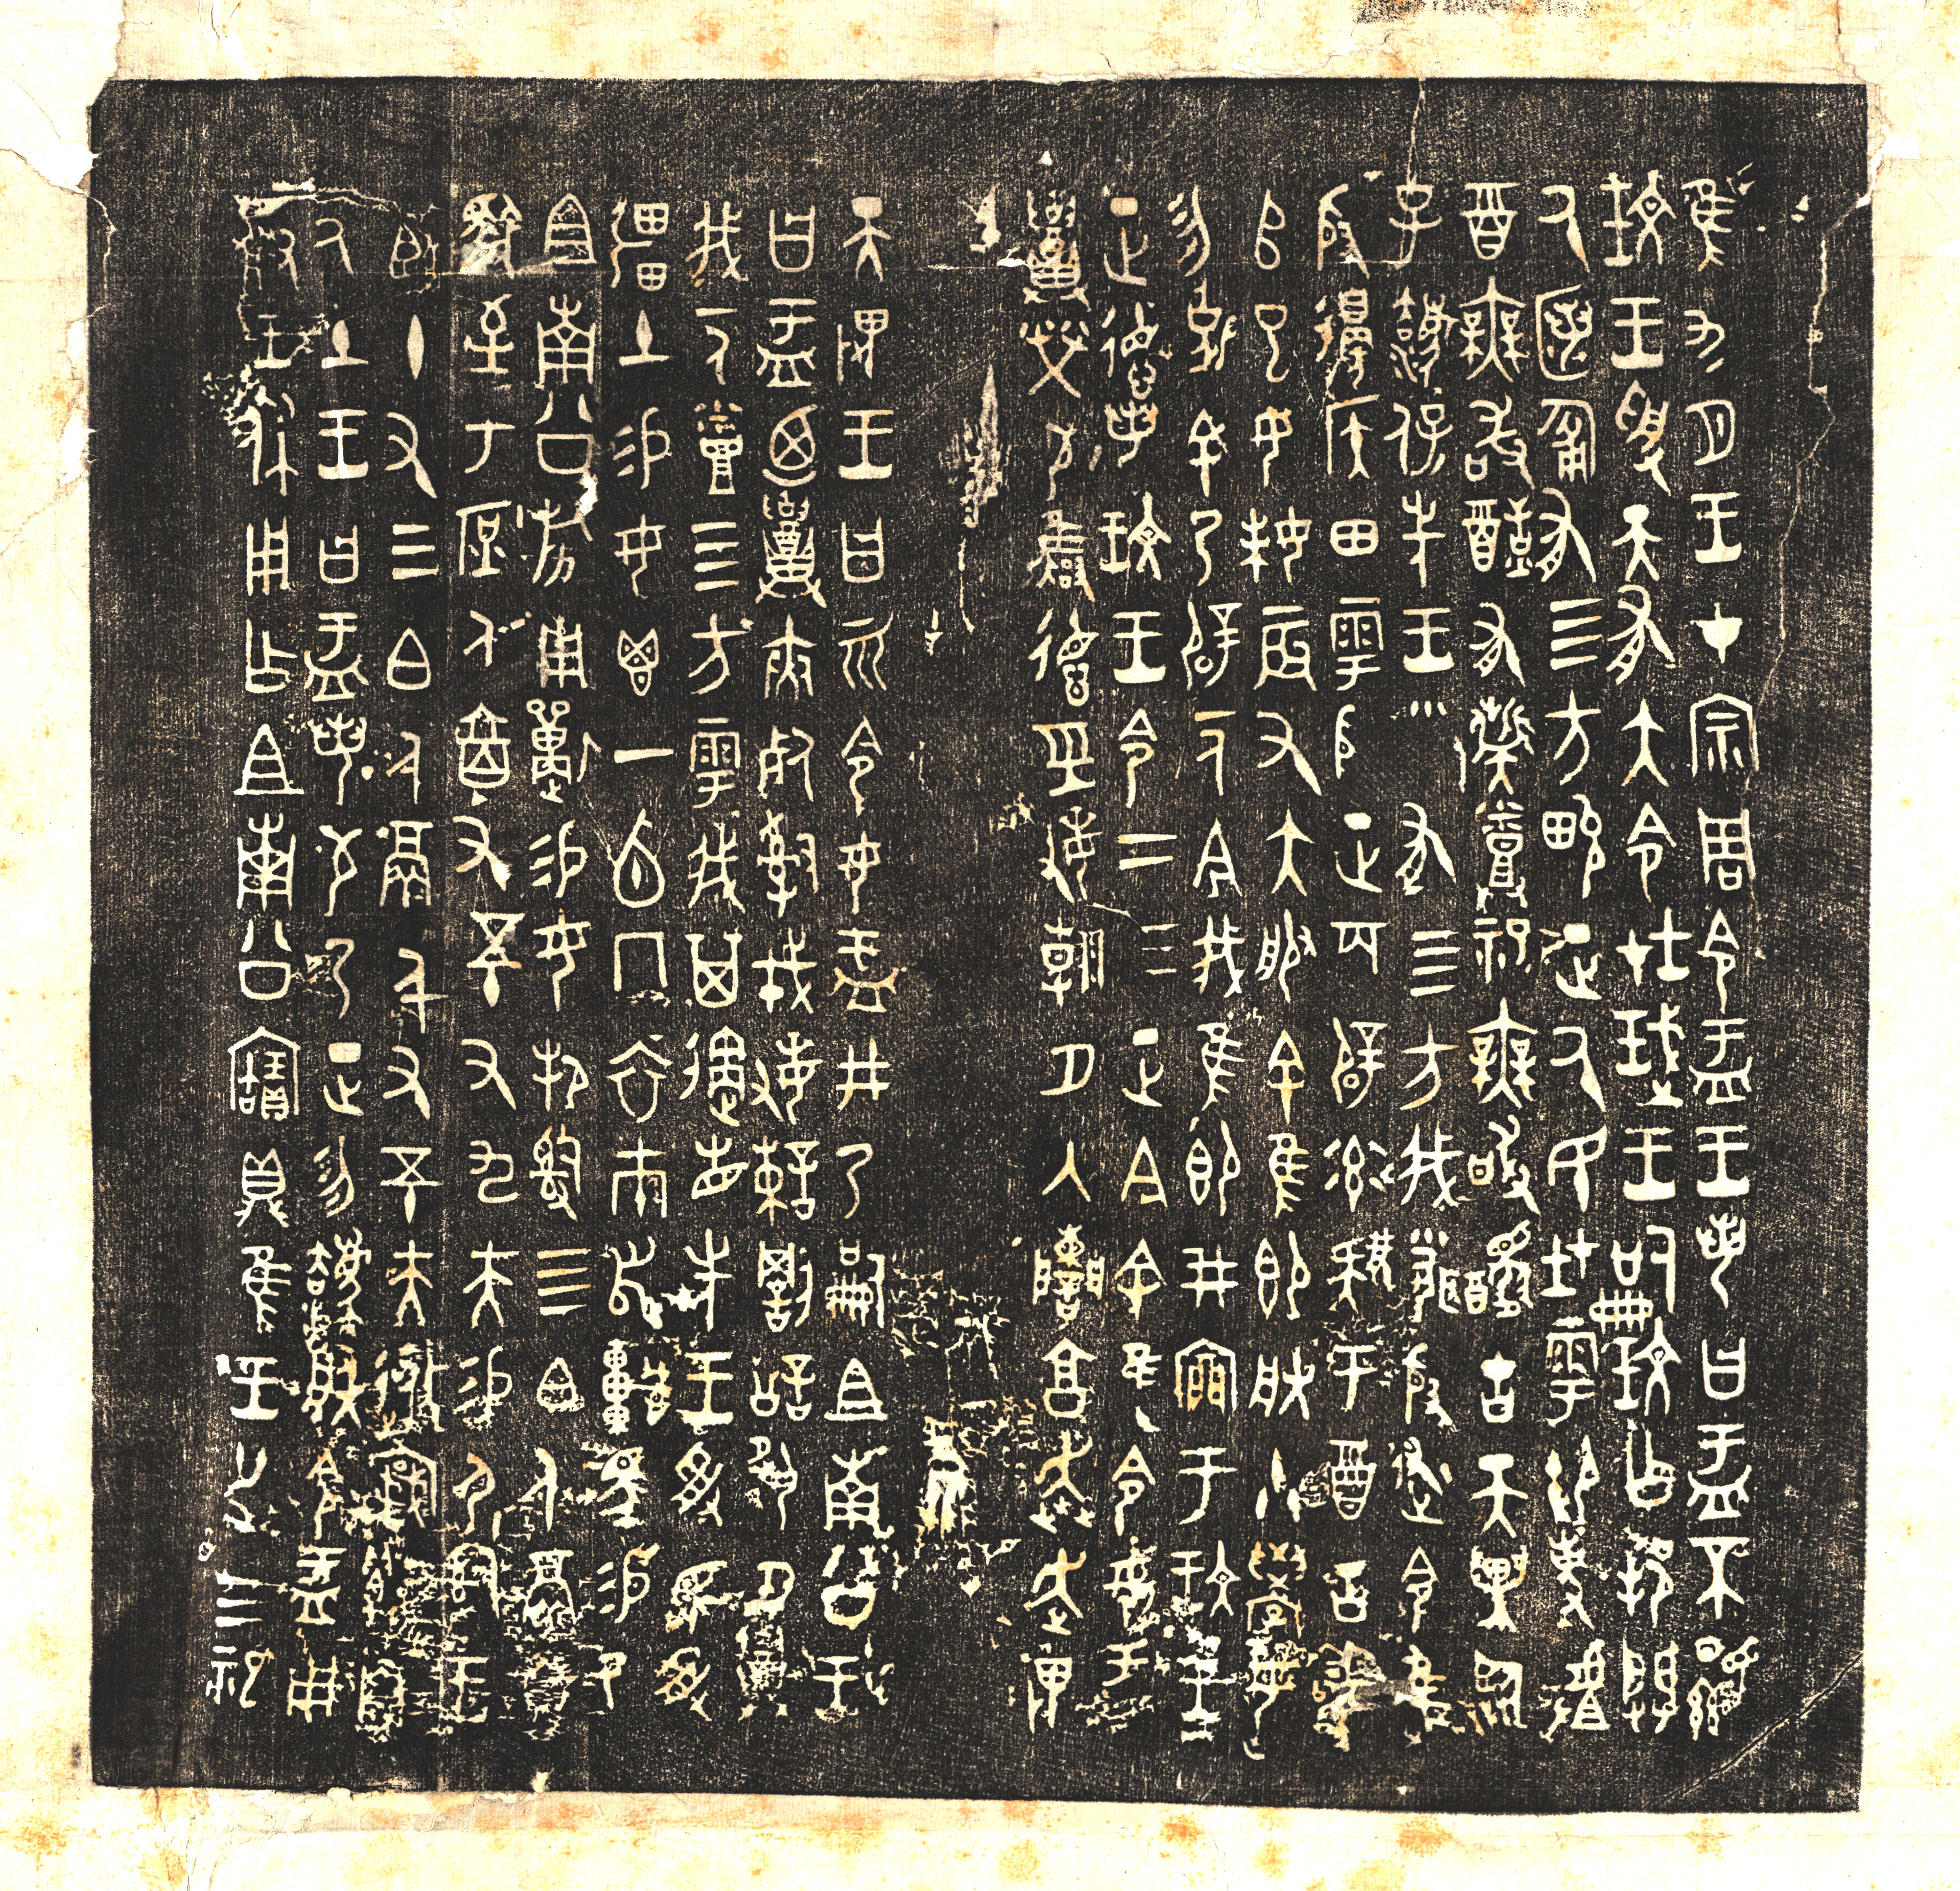 隹九月王才宗周令盂王若曰盂不顯
玟王受天有大令在珷王嗣玟乍邦闢
厥匿匍有四方畯正厥民在雩御事𠭯
酉無敢酖有髭烝祀無敢醻古天異臨
子灋保先王有四方我聞殷述令隹
殷邊侯田雩殷正百辟率肄于酉古喪
𠂤已女妹辰又大服余隹即朕小學女
勿剋余乃辟一人今我隹即井㐭于玟王
正德若玟王令二三正今余隹令女盂
召榮敬雍德巠敏朝夕入讕享奔走畏
天畏王曰𠇷令女盂井乃嗣且南公王
曰盂廼召夾死司戎敏諫罰訟夙夕召
我一人烝四方雩我其遹省先王受民受
彊土易女鬯一卣冂衣巿舄車馬易乃
且南公旂用狩易女邦司四白人鬲自
馭至于庶人六百又五十又九夫易尸司王
臣十又三白人鬲千又五十夫
厥土王曰盂若敬乃正勿灋朕令盂用
對王休用乍且南公寶鼎隹王廿又三祀